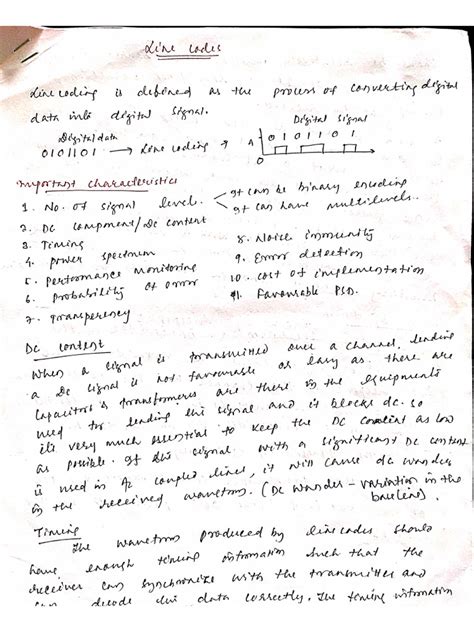 Line codes
Line coding is defined as the process of converting digital
data into digital signal.
Digital data
0101101 → Line coding →
Digital signal
A 0 1 0 1 1 0 1
0
Important characteristics
1. No. of signal level. It can be binary encoding
It can have multilevels.
2. DC component/DC content
3. Timing
4. power spectrum
5. Performance monitoring
6. Probability of error
7. Transparency
8. Noise immunity
9. Error detection
10. cost of implementation
11. Favourable PSD.
DC content
When a signal is transmitted over a channel, sending
a DC signal is not favourable as there are
capacitors & transformers are there in the equipments
used for sending the signal and it blocks dc. so
its very much essential to keep the DC content as low
as possible. If signal with a significant DC content
is used in coupled lines, it will cause dc wander
in the received waveform. (DC wander - variation in the
baseline).
Timing
The waveform produced by line codes should
have enough timing information such that the
receiver can synchronize with the transmitter and
decode the data correctly. The timing information